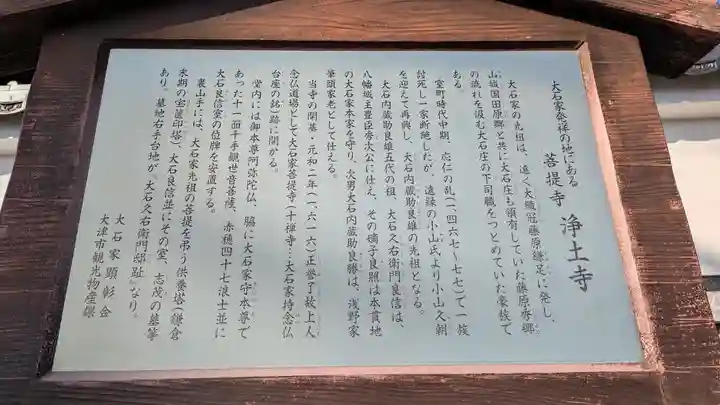 大石家発祥の地にある
菩提寺 浄土寺
大石家の先祖は、遠く大織冠藤原鎌足に発し、
山城国田原郷と共に大石庄も領有していた藤原秀郷
の流れを汲む大石庄の下司職をつとめていた豪族で
ある。
室町時代中期、応仁の乱(一四六七~七七)で一族
討死し一家断絶したが、遠縁の小山氏より小山久朝
を迎えて再興し、大石内蔵助良雄の先祖となる。
大石内蔵助良雄五代の祖、大石久右衛門良信は、
八幡城主豊臣秀次公に仕え、その嫡子良照は本貫地
の大石家本家を守り、次男大石内蔵助良勝は、浅野家
筆頭家老として仕える。
当寺の開基・元和二年(一六一六)正誉了故上人
念仏道場として大石家菩提寺(十禅寺…大石家持念仏
台座の銘)跡に開かる。
堂内には御本尊阿弥陀仏、脇に大石家守本尊で
あった十一面千手観世音菩薩、赤穂四十七浪士並に
大石良信室の位牌を安置する。
裏山手には、大石家先祖の菩提を弔う供養塔(鎌倉
末期の宝篋印塔)、大石良信並にその室、志茂の墓等
あり。墓地右手台地が、大石久右衛門邸趾なり。
大石家顕彰会
大津市観光物産課